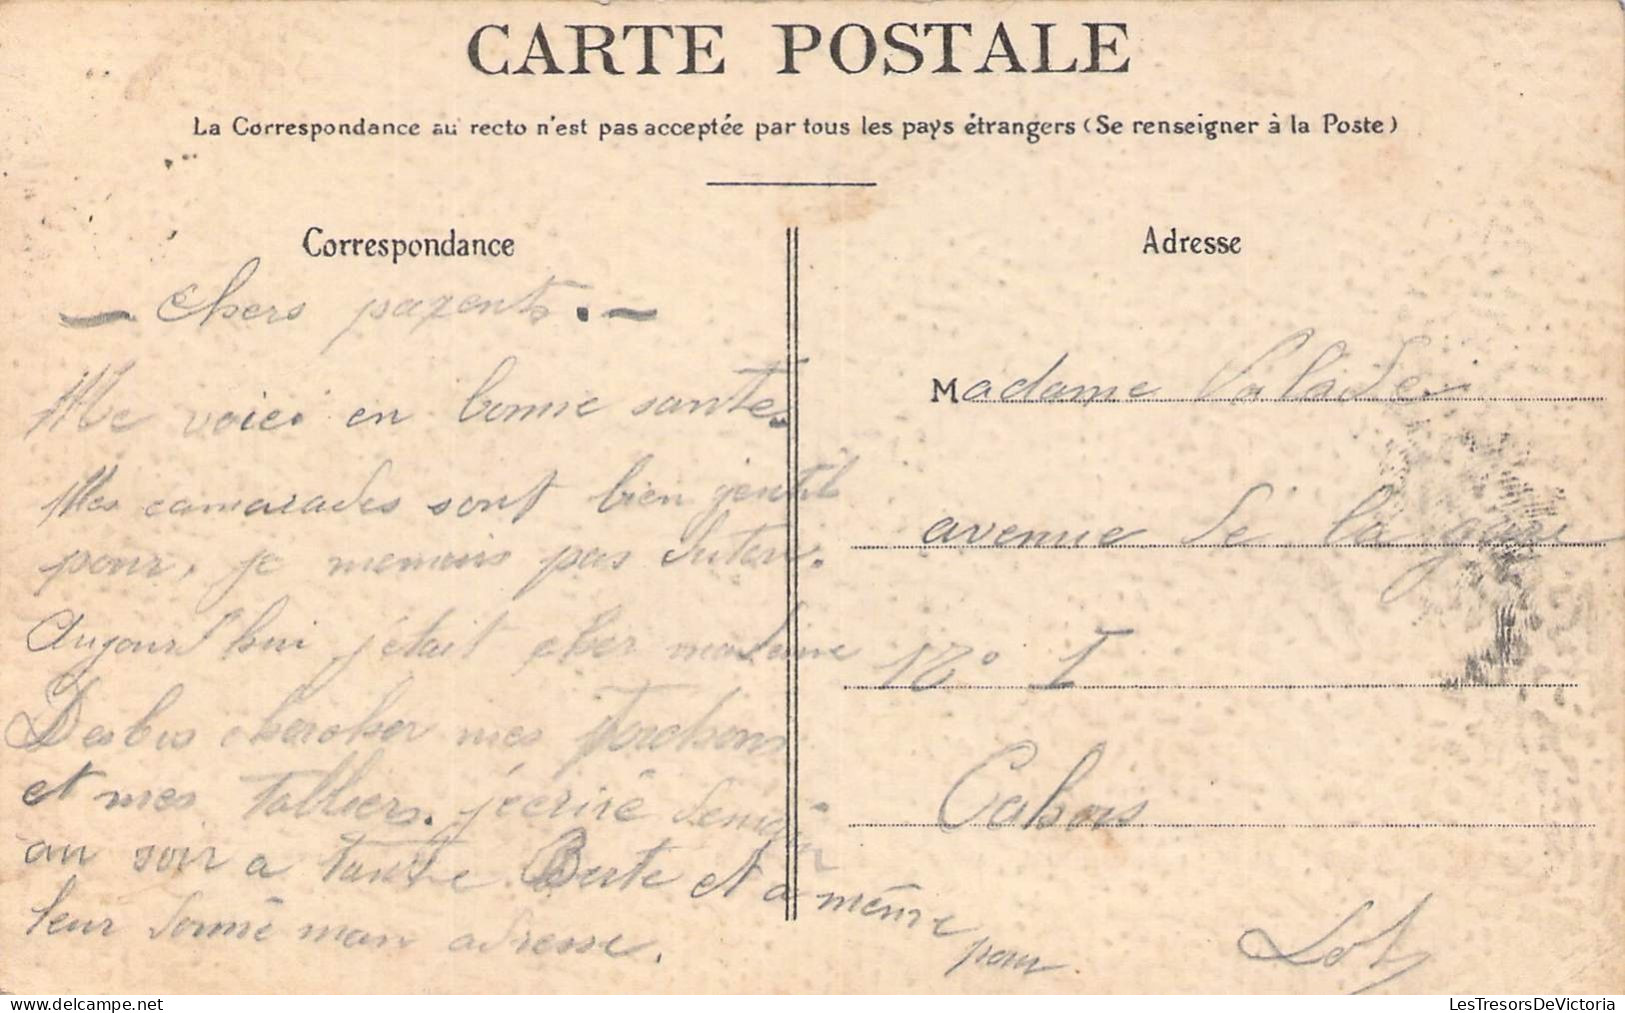 CARTE POSTALE
La Correspondance au recto n'est pas acceptée par tous les pays étrangers (Se renseigner à la Poste)
Correspondance
Chers parents.
Me voici en bonne sante.
Mes camarades sont bien gentil
pour, je memnuis pas
Aujourd'hui j'était cher madame
chercher mes torchons
et mes talliers. j'écrire demain
au soir a tante Berte et a mémé
pour
leur donné mon adresse.
Adresse
Madame Valade
avenue de la gare
N° 1
Cahors
Lot
LesTresorsDeVictoria